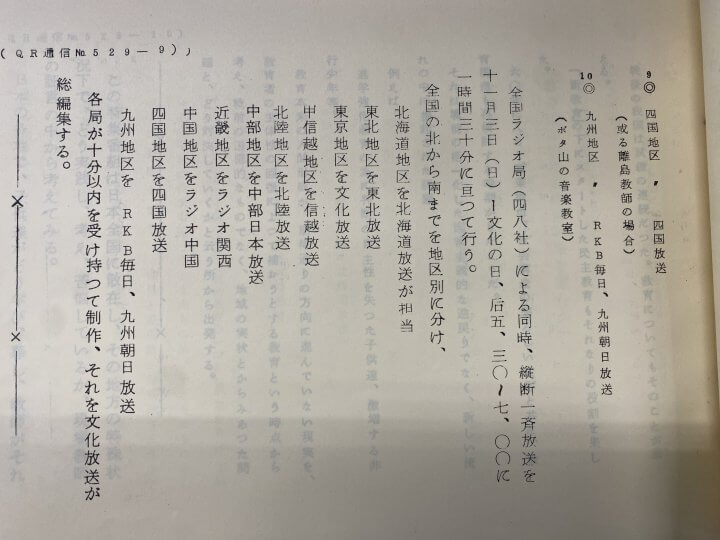 9◎ 四国地区 〃 四国放送
(或る離島教師の場合)
10◎ 九州地区 〃 RKB毎日、九州朝日放送
(ボタ山の音楽教室)
全国ラジオ局(四八社)による同時、縦断一斉放送を
十一月三日(日)ー文化の日、后五、三〇〜七、〇〇に
一時間三十分に亘つて行う。
全国の北から南までを地区別に分け、
北海道地区を北海道放送が相当
東北地区を東北放送
東京地区を文化放送
甲信越地区を信越放送
北陸地区を北陸放送
中部地区を中部日本放送
近畿地区をラジオ関西
中国地区をラジオ中国
四国地区を四国放送
九州地区を RKB毎日、九州朝日放送
各局が十分以内を受け持つて制作、それを文化放送が
総編集する。
(QR通信№529—9))